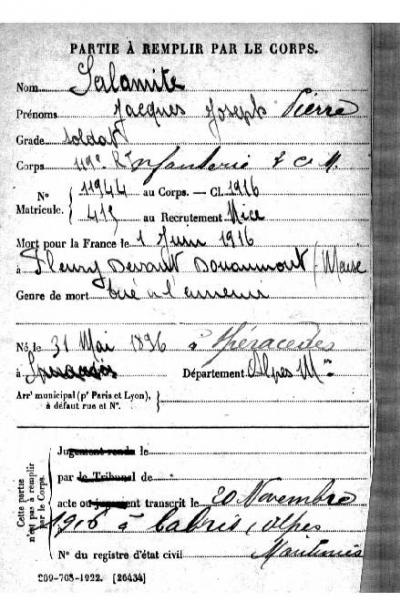 PARTIE À REMPLIR PAR LE CORPS.
Nom Salamite
Prénoms Jacques Joseph Pierre
Grade soldat
Corps 119e R. Infanterie 7 C M.
N° Matricule. { 11944 au Corps. — Cl. 1916
415 au Recrutement Nice
Mort pour la France le 1 Juin 1916
à Fleury Devant Douaumont (Meuse
Genre de mort tué à l'ennemi
Né le 31 Mai 1896 à Spéracèdes
à Département Alpes Mmes
Arr' municipal (p' Paris et Lyon), à défaut rue et N°. }
Cette partie n'est pas à remplir par le Corps.
Jugement rendu le
par le Tribunal de
acte ou jugement transcrit le 20 Novembre
1916 à Cabris, Alpes
Maritimes
N° du registre d'état civil
209-708-1922. [26434]